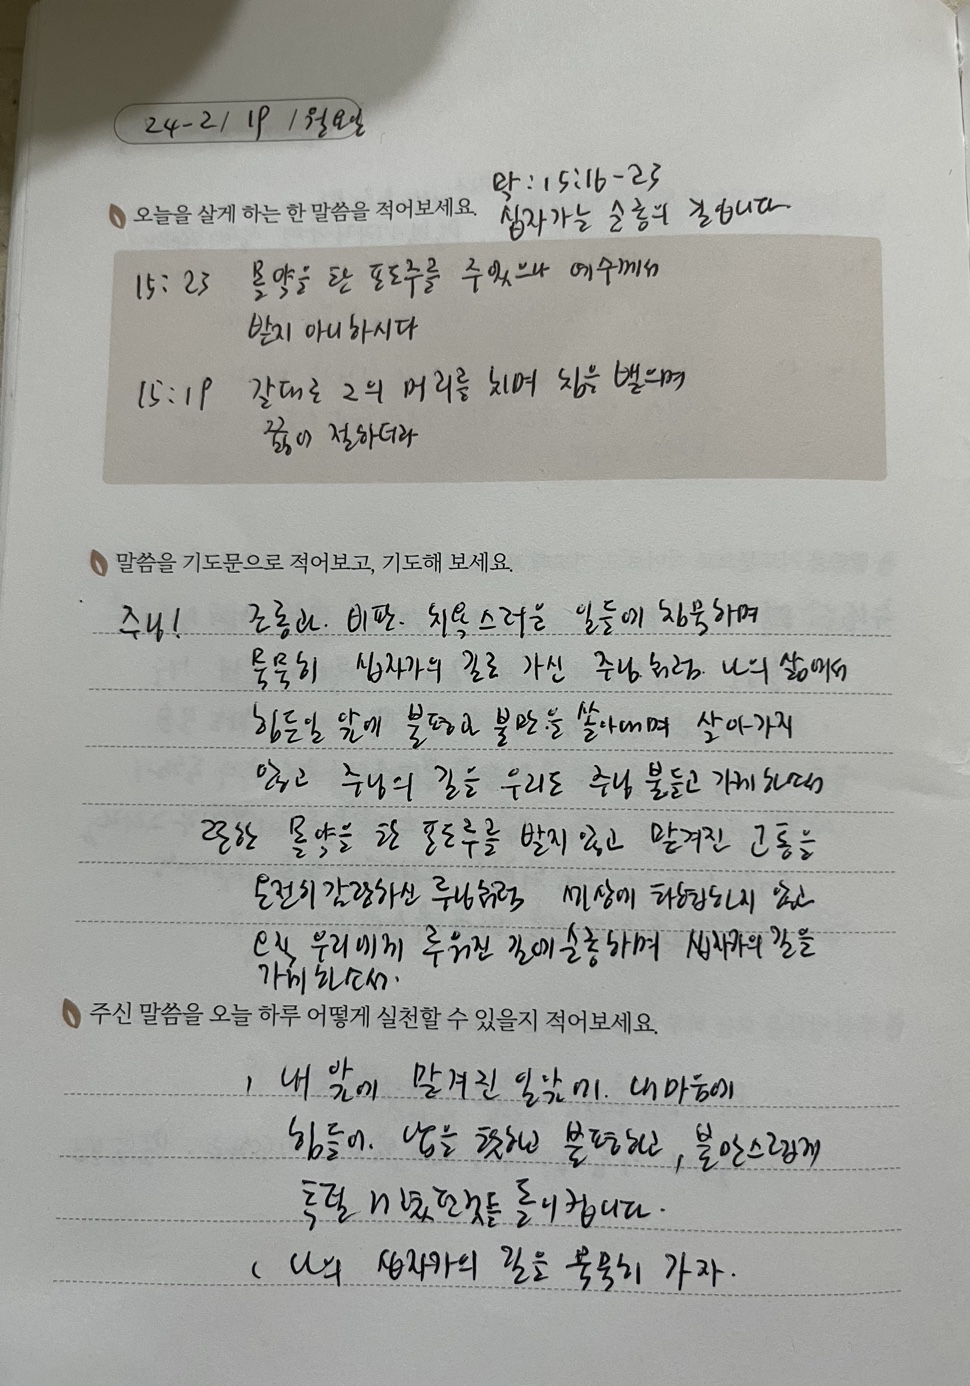 24-2/ 19 / 월요일
막:15:16-23
오늘을 살게 하는 한 말씀을 적어보세요.
십자가는 순종의 길입니다
15:23 몰약을 탄 포도주를 주었으나 예수께서
받지 아니하시다
15:19 갈대로 그의 머리를 치며 침을 뱉으며
꿇어 절하더라
말씀을 기도문으로 적어보고, 기도해 보세요.
주님! 조롱과. 비판. 치욕스러운 일들에 침묵하며
묵묵히 십자가의 길로 가신 주님처럼. 나의 삶에서
힘든일 앞에 불평과 불만을 쏟아내며 살아가지
않고 주님의 길을 우리도 주님 붙들고 가게 하소서
또한 몰약을 탄 포도주를 받지 않고 맡겨진 고통을
온전히 감당하신 주님처럼 세상에 타협하지 않고
오직 우리에게 주워진 길에 순종하며 십자가의 길을
가게 하소서.
주신 말씀을 오늘 하루 어떻게 실천할 수 있을지 적어보세요.
내 앞에 맡겨진 일앞에. 내마음에
힘들어. 남을 탓하고 불평하고, 불안스럽게
돌이킵니다.
나의 십자가의 길을 묵묵히 가자.